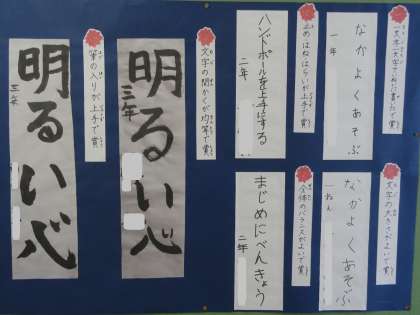 一文字一文字ていねいに書けたで賞
なかよくあそぶ
一年
とめはねはらいが上手で賞
ハンドボールを上手にする
二年
文字の大きさがよいで賞
なかよくあそぶ
一ねん
全体のバランスがよいで賞
まじめにべんきょう
二年
文字の間かくが均等で賞
明るい心
三年
筆の入りが上手で賞
明るい心
三年